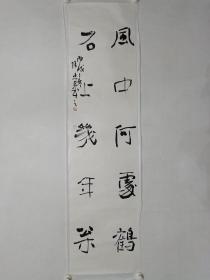 風中何處鶴
石上幾年松